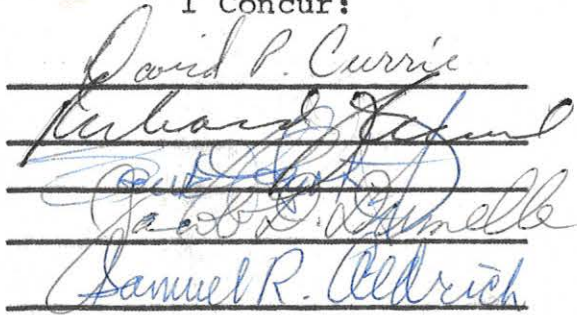 I Concur:
David P. Currie
Richard
Jacob D. Dumelle
Samuel R. Aldrich